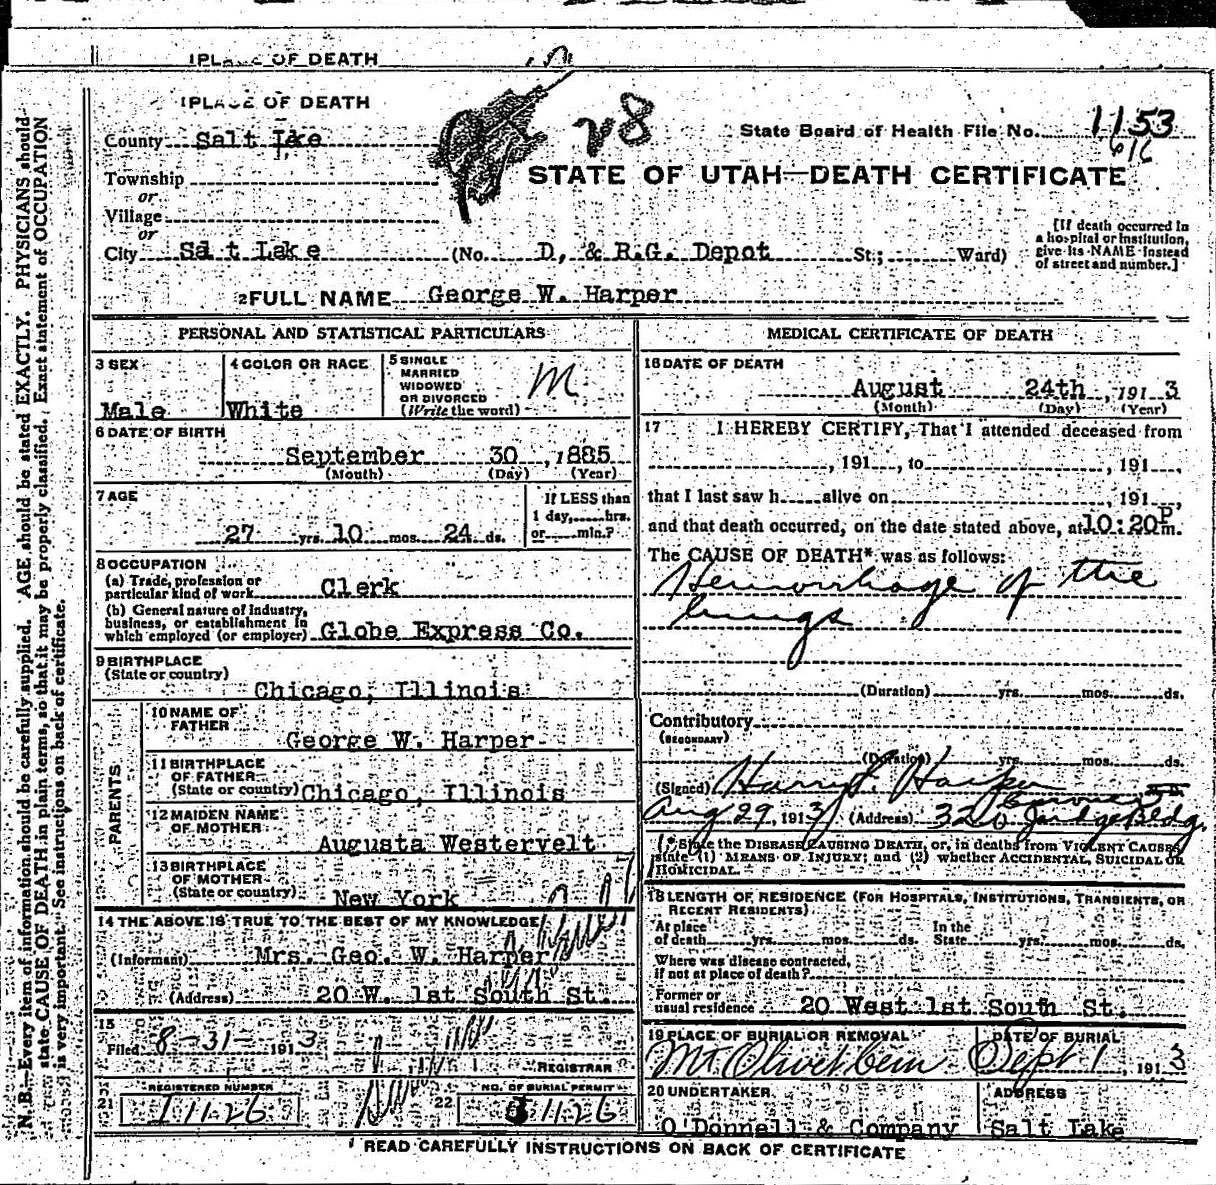 1 PLACE OF DEATH
1 PLACE OF DEATH
County Salt Lake
28
State Board of Health File No. 1153
616
STATE OF UTAH—DEATH CERTIFICATE
Township
or
Village
or
City Salt Lake (No. D, & R.G. Depot St.; Ward)
[If death occurred in
a hospital or institution,
give its NAME instead
of street and number.]
2 FULL NAME George W. Harper
PERSONAL AND STATISTICAL PARTICULARS
3 SEX
Male
4 COLOR OR RACE
White
5 SINGLE
MARRIED
WIDOWED
OR DIVORCED
(Write the word)
M
6 DATE OF BIRTH
September 30, 1885
(Month) (Day) (Year)
7 AGE
27 yrs. 10 mos. 24 ds.
If LESS than
1 day, hrs.
or min.?
8 OCCUPATION
(a) Trade, profession or
particular kind of work Clerk
(b) General nature of industry,
business, or establishment in
which employed (or employer) Globe Express Co.
9 BIRTHPLACE
(State or country)
Chicago, Illinois
PARENTS
10 NAME OF
FATHER
George W. Harper
11 BIRTHPLACE
OF FATHER
(State or country) Chicago, Illinois
12 MAIDEN NAME
OF MOTHER
Augusta Westervelt
13 BIRTHPLACE
OF MOTHER
(State or country) New York
14 THE ABOVE IS TRUE TO THE BEST OF MY KNOWLEDGE
(Informant) Mrs. Geo. W. Harper
(Address) 20 W. 1st South St.
15
Filed 8-31 1913
REGISTRAR
REGISTERED NUMBER
21 11126
NO. OF BURIAL PERMIT
22 11126
MEDICAL CERTIFICATE OF DEATH
16 DATE OF DEATH
August 24th, 1913
(Month) (Day) (Year)
17 I HEREBY CERTIFY, That I attended deceased from
, 191 , to , 191 ,
that I last saw h alive on , 191 ,
and that death occurred, on the date stated above, at 10:20 P. m.
The CAUSE OF DEATH* was as follows:
Hemorrhage of the
lungs
(Duration) yrs. mos. ds.
Contributory
(SECONDARY)
(Duration) yrs. mos. ds.
(Signed) Harry S. Harper M.D.
Coroner
Aug 29, 1913 (Address) 320 Judge Bldg.
(* State the DISEASE CAUSING DEATH, or, in deaths from VIOLENT CAUSES,
state (1) MEANS OF INJURY; and (2) whether ACCIDENTAL, SUICIDAL OR
HOMICIDAL.
18 LENGTH OF RESIDENCE (FOR HOSPITALS, INSTITUTIONS, TRANSIENTS, OR
RECENT RESIDENTS)
At place
of death yrs. mos. ds.
In the
State yrs. mos. ds.
Where was disease contracted,
if not at place of death?
Former or
usual residence 20 West 1st South St.
19 PLACE OF BURIAL OR REMOVAL
Mt Olivet Cem
DATE OF BURIAL
Sept 1, 1913
20 UNDERTAKER
O'Donnell & Company
ADDRESS
Salt Lake
READ CAREFULLY INSTRUCTIONS ON BACK OF CERTIFICATE
N. B.—Every item of information should be carefully supplied. AGE should be stated EXACTLY. PHYSICIANS should
state CAUSE OF DEATH in plain terms, so that it may be properly classified. Exact statement of OCCUPATION
is very important. See instructions on back of certificate.